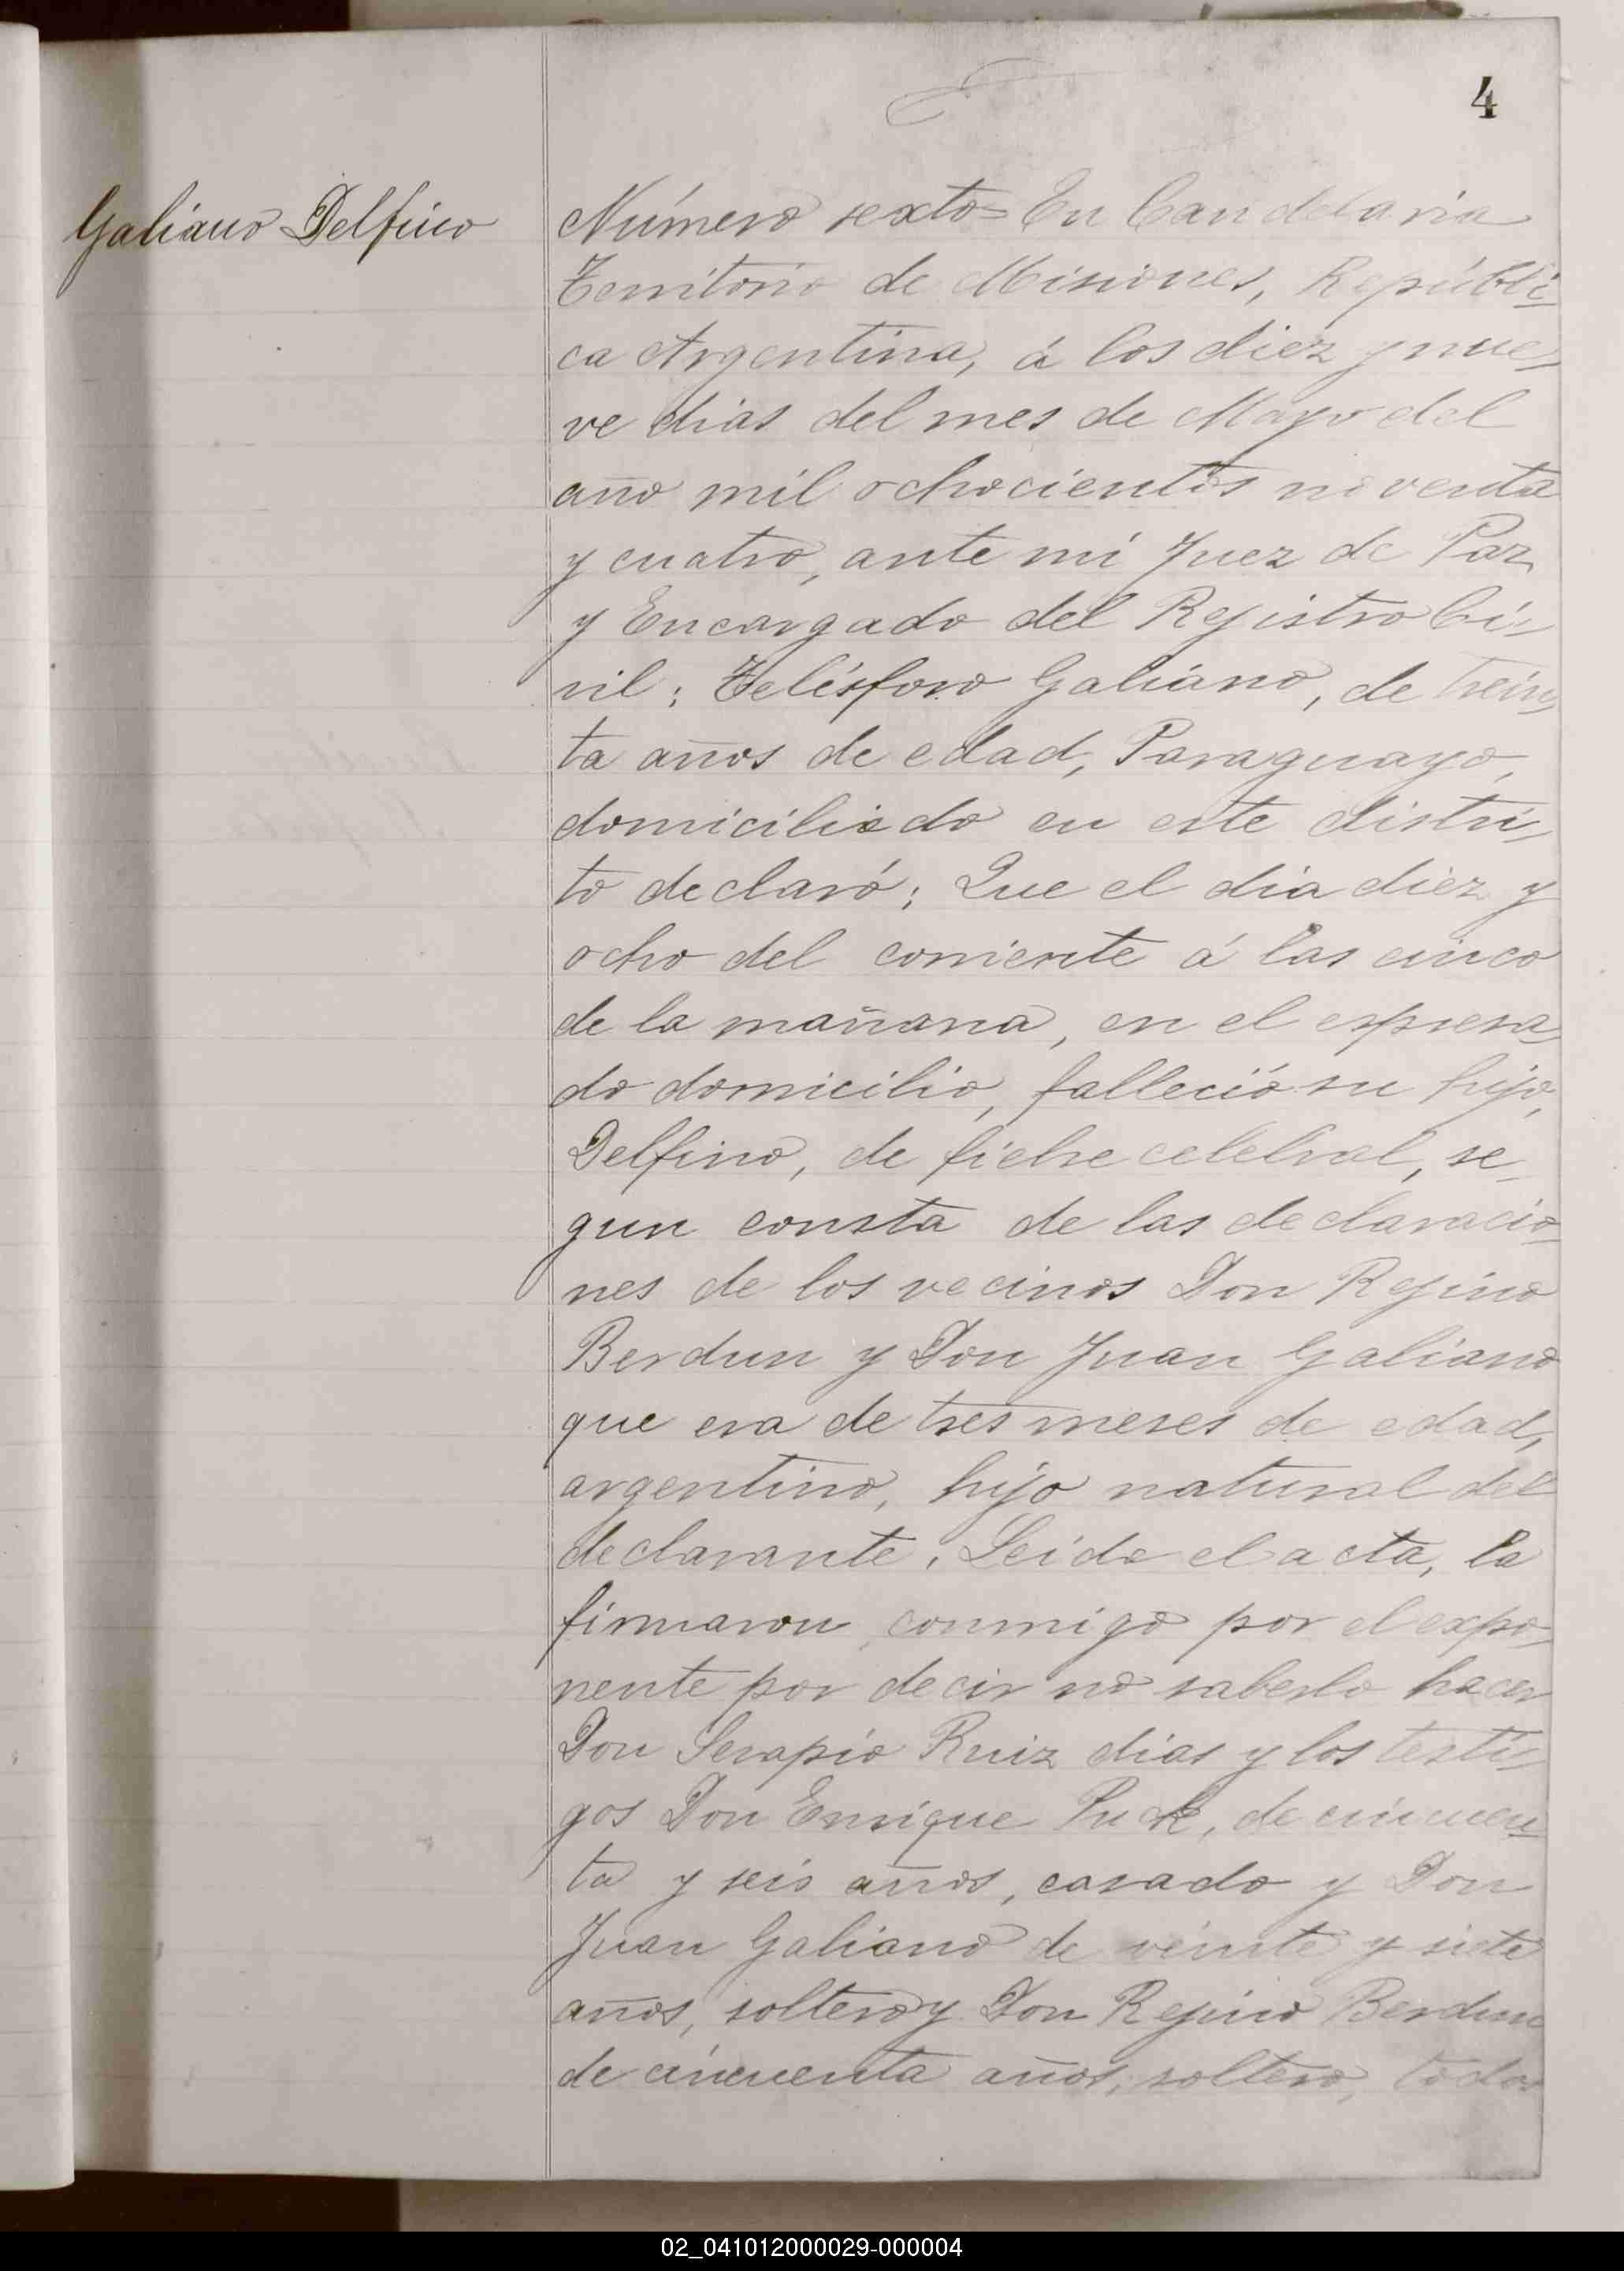 4
Galiano Delfino
Número sexto = En Candelaria
Territorio de Misiones, Repúbli=
ca Argentina, á los diez y nue=
ve dias del mes de Mayo del
año mil ochocientos noventa
y cuatro, ante mi Juez de Paz
y Encargado del Rejistro Ci=
vil; Telésforo Galiano, de trein=
ta años de edad, Paraguayo,
domiciliado en este distri=
to declaró; Que el dia diez y
ocho del corriente á las cinco
de la mañana, en el espresa=
do domicilio, falleció su hijo,
Delfino, de fiebre celebral, se=
gun consta de las declaracio=
nes de los vecinos Don Rejino
Berdun y Don Juan Galiano
que era de tres meses de edad,
argentino, hijo natural del
declarante. Leida el acta, la
firmaron conmigo por el expo=
nente por decir no saberlo hacer
Don Serapio Ruiz dias y los testi=
gos Don Enrique Puck, de cincuen=
ta y seis años, casado y Don
Juan Galiano de veinte y siete
años, soltero y Don Rejino Berdun
de cincuenta años, soltero, todos
02_041012000029-000004